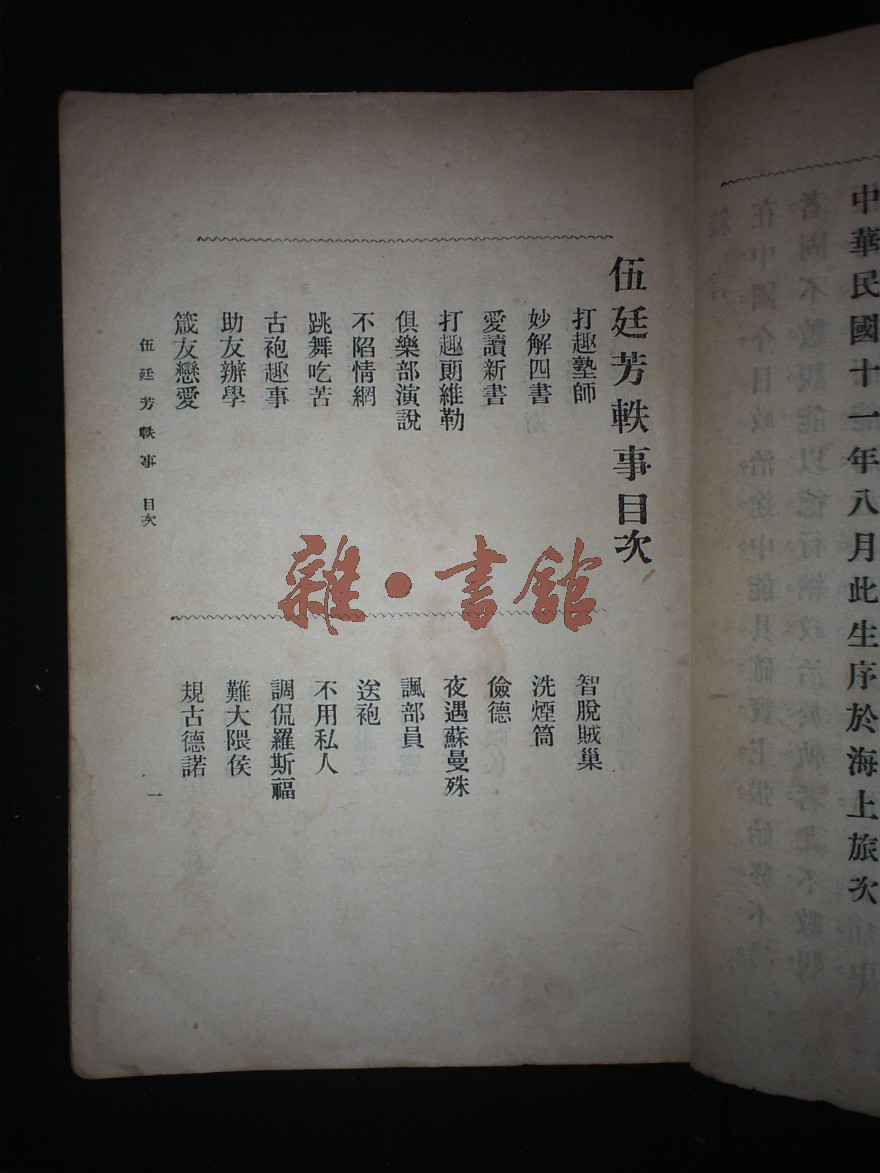 中華民國十一年八月此生序於海上旅次
伍廷芳軼事目次
打趣塾師
妙解四書
愛讀新書
打趣勛維勒
俱樂部演說
不陷情網
跳舞吃苦
古袍趣事
助友辦學
箴友戀愛
智脫賊巢
洗煙筒
儉德
夜遇蘇曼殊
諷部員
送袍
不用私人
調侃羅斯福
難大隈侯
規古德諾
伍廷芳軼事 目次
一
雜·書館